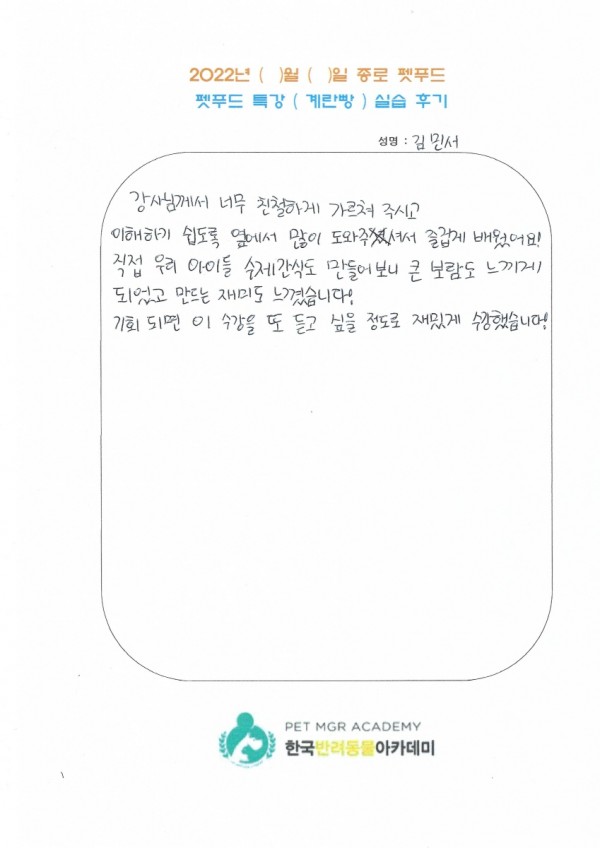 2022년 (  )월 (  )일 종로 펫푸드
펫푸드 특강 ( 계란빵 ) 실습 후기
성명 : 김민서
강사님께서 너무 친철하게 가르쳐 주시고
이해하기 쉽도록 옆에서 많이 도와주셔서 즐겁게 배웠어요!
직접 우리 아이들 수제간식도 만들어보니 큰 보람도 느끼게
되었고 만드는 재미도 느꼈습니다!
기회 되면 이 수강을 또 듣고 싶을 정도로 재밌게 수강했습니다!
PET MGR ACADEMY
한국반려동물아카데미